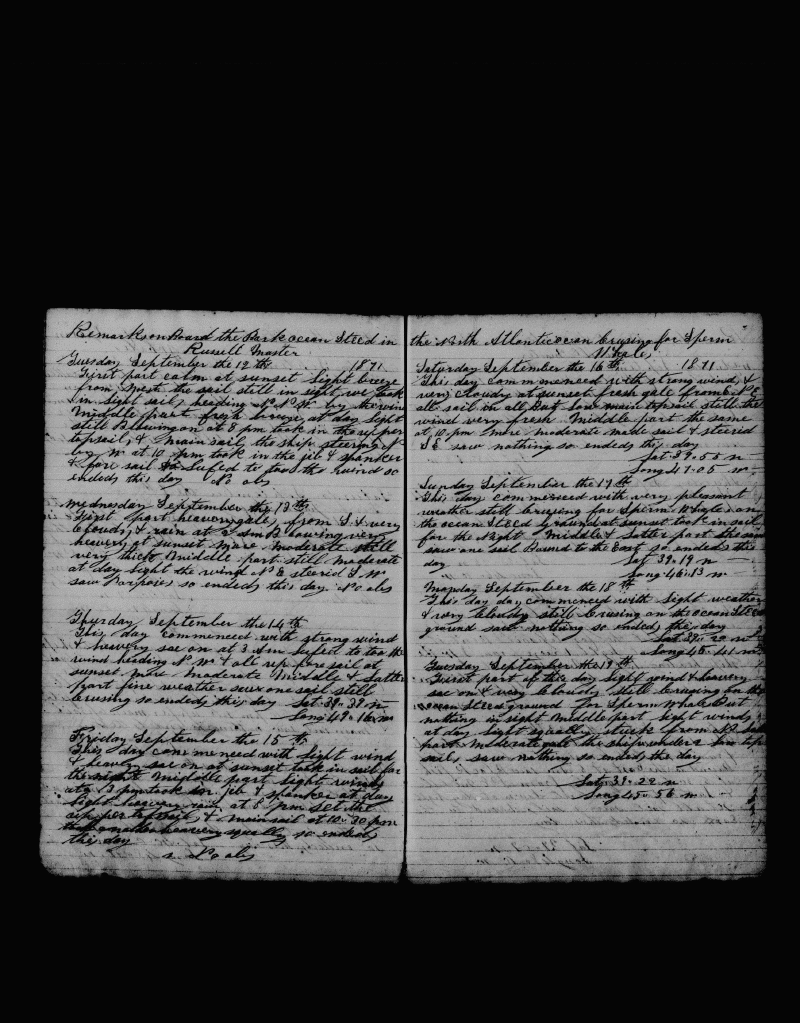 Remarks on Board the Bark ocean Steed in
Russell Master
Tuesday September the 12th 1871
First part calm at sunset light breeze
from West the sail still in sight we took
in light sails heading N N W by the wind
Middle part fresh breeze at day light
still Blowing on at 8 pm took in the upper
topsails & main sail the ship steering N
by W at 10 pm took in the jib & spanker
& fore sail to the wind so
ended this day No obs
Wednesday September the 13th
First part heavery gale from S & very
cloudy & rain at 3 very
heavery at sunset More Moderate still
very thick Middle part still Moderate
at day light the wind N E steerid S W
saw Porpoies so ended this day No obs
Thurday September the 14th
This day commenced with strong wind
& heavery sea on at 3 Am to the
wind heading N W & all upper sail at
sunset More Moderate Middle & Latter
part fine weather saw one sail still
Crusing so ended this day Lat 39.. 39 n
Long 49.. 16 w
Friday September the 15 th
This day commenced with light wind
& heavery sea on at sunset took in sail for
the night Middle part light winds
at 3 pm took in jib & spanker at day
light heavery rain at 8 pm set the
upper topsails & Mainsail at 10..30 pm
heavery squally so ended
this day
No obs
the North Atlantic ocean Crusing for Sperm
Whales
Saturday September the 16th 1871
This day commenced with strong wind &
very cloudy at sunset fresh gale from N E
all sail in all But low main topsail still the
wind very fresh Middle part the same
at 10 pm More Moderate Made sail & steered
S E saw nothing so ended this day
Lat 39..55 n
Long 47..05 w
Sunday September the 17th
This day commenced with very pleasant
weather still Crusing for Sperm Whales on
the ocean Steed ground at sunset took in sail
for the Night Middle & Latter part the same
saw one sail Bound to the East so ended this
day Lat 39..19 n
Long 46..13 w
Monday September the 18th
This day day commenced with light weather
& very Cloudy still Crusing on the ocean Steed
ground saw nothing so ended this day
Lat 39.. 20 n
Long 45.. 41 w
Tuesday September the 19th
Fiirst part of this day light wind & heavery
sea on & very Cloudy still Crusing on the
ocean Steed ground for Sperm Whale But
nothing in sight Middle part light winds
at day light squally from N Latter
part Moderate gale the ship under low top
sails saw nothing so ended this day
Lat 39.. 22 n
Long 45.. 56 w